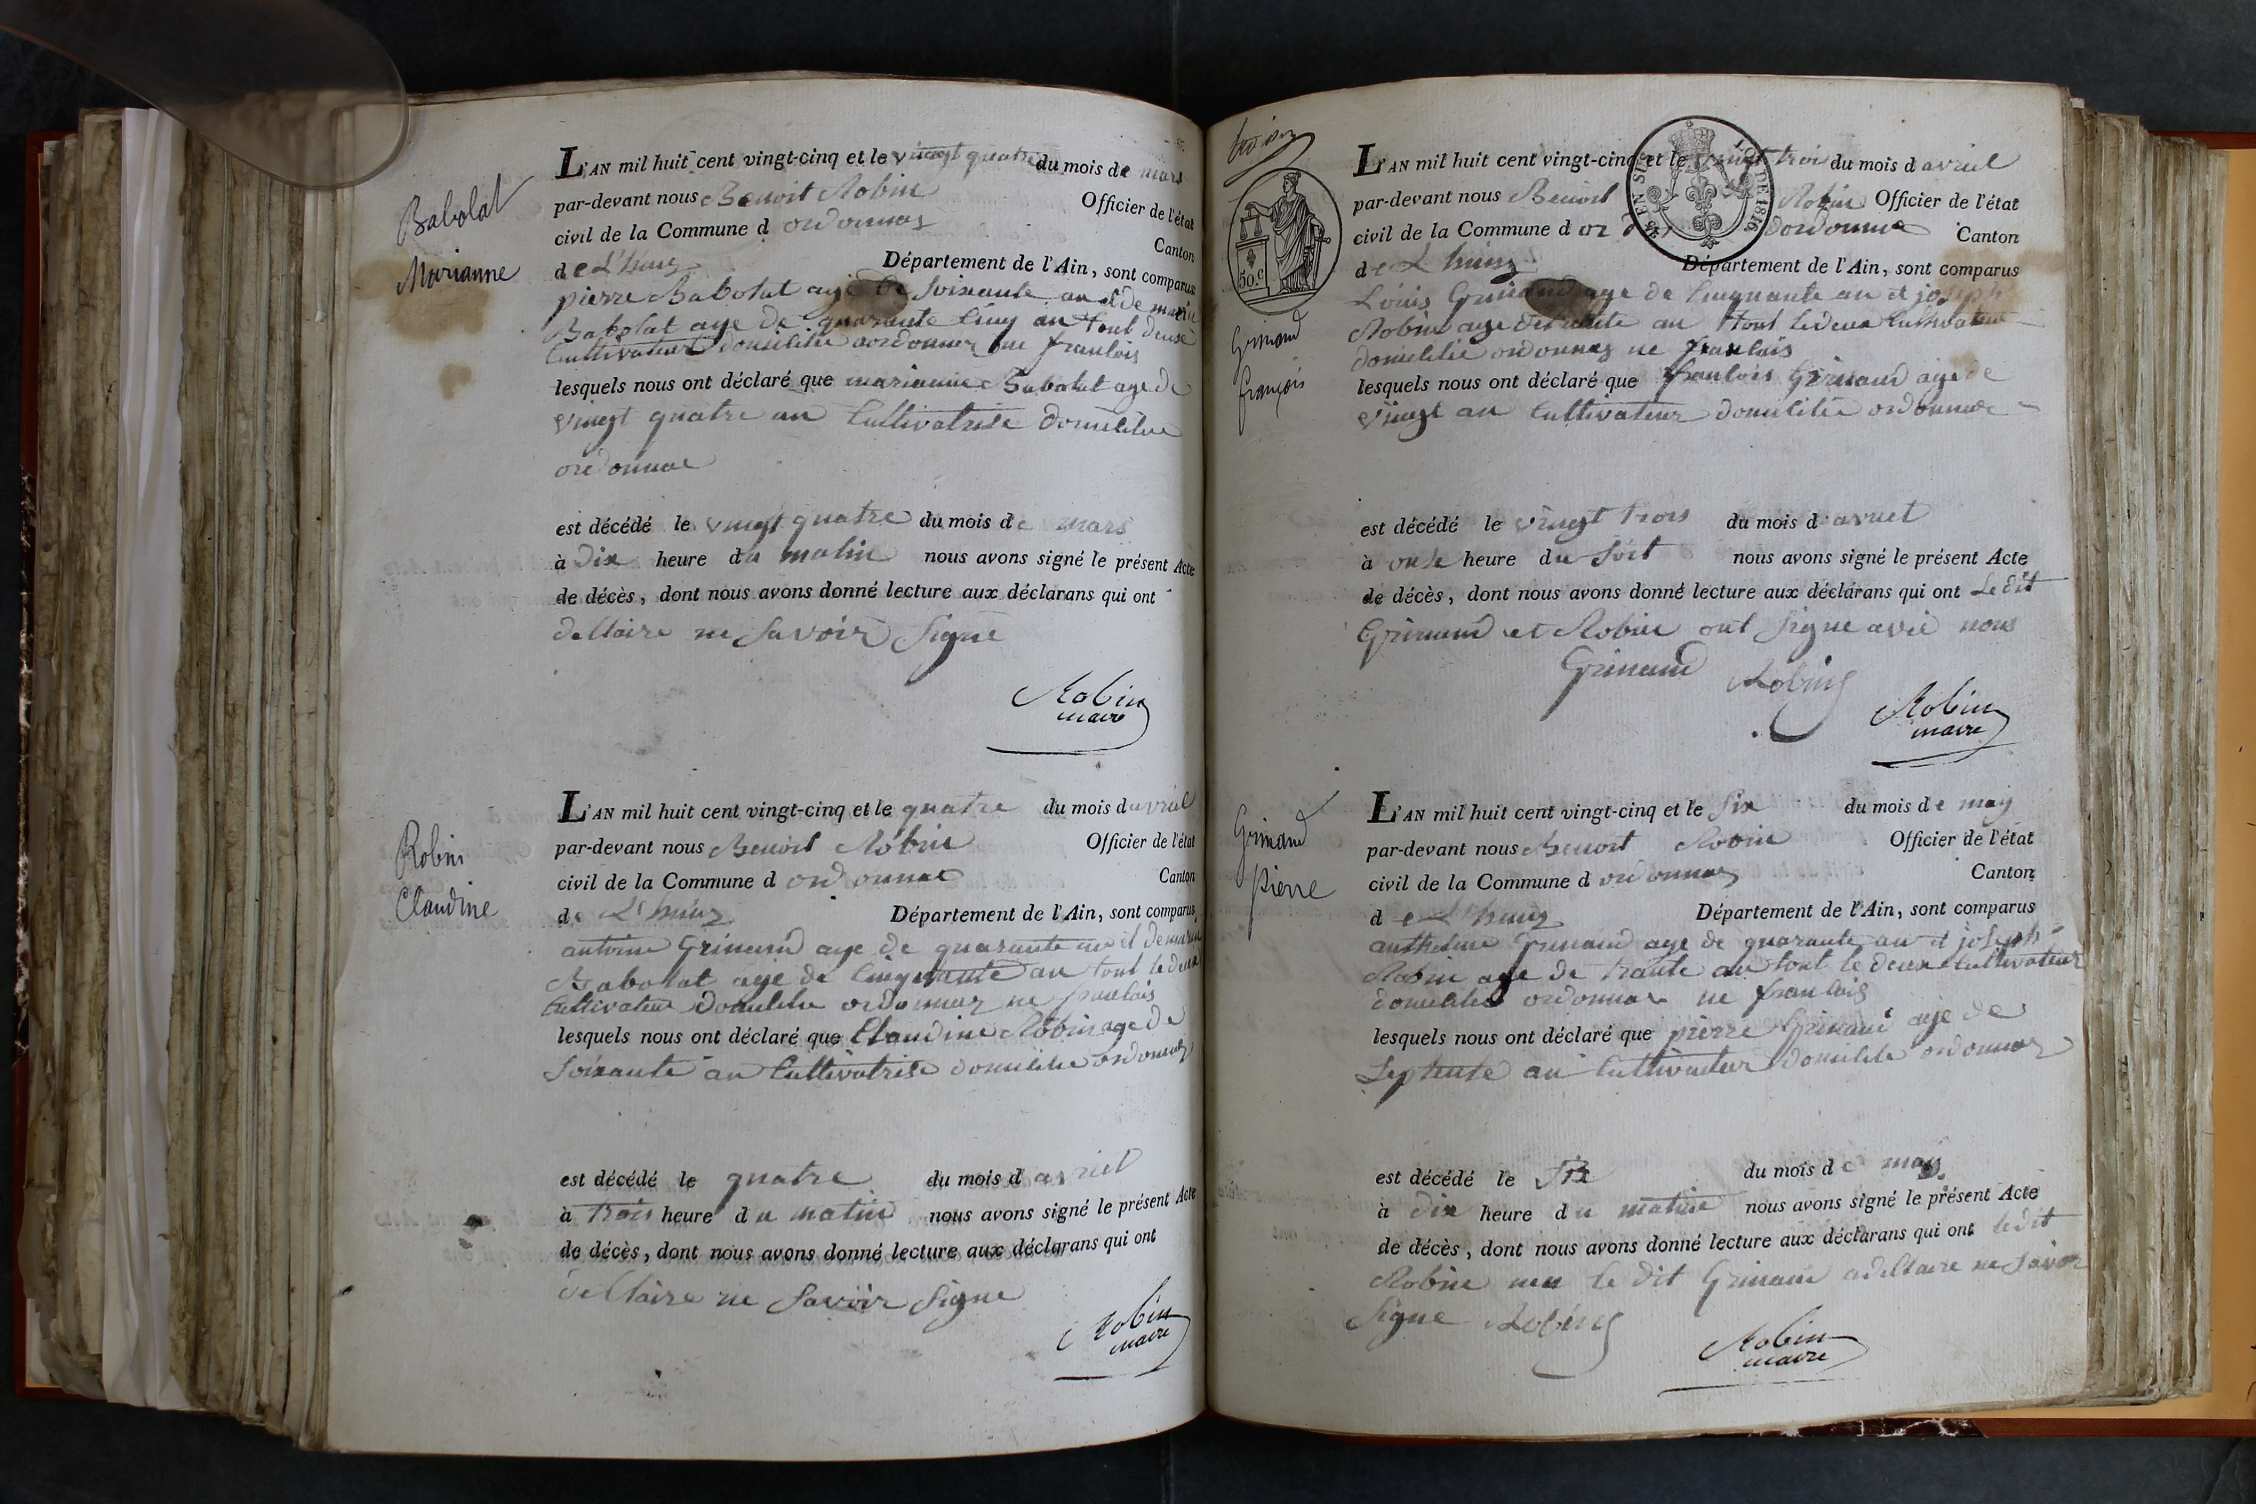 Babolat
Marianne
L'AN mil huit cent vingt-cinq et le vingt quatre du mois de mars
par-devant nous Benoit Robin Officier de l'état
civil de la Commune d ordonnaz Canton
de L'huiz Département de l'Ain, sont comparus
pierre Babolat agé de soixante an et de marin
Babolat age de quarante cinq an tout deuse
Cultivateur domicilie aordonnaz ne francois
lesquels nous ont déclaré que marianne Babolat age de
vingt quatre an Cultivatrise domicilie
ordonnaz
est décédé le vingt quatre du mois de mars
à dix heure du matin nous avons signé le présent Acte
de décès, dont nous avons donné lecture aux déclarans qui ont
declaire ne savoir signe
Robin
maire
Robin
Claudine
L'AN mil huit cent vingt-cinq et le quatre du mois davriel
par-devant nous Benoit Robin Officier de l'état
civil de la Commune d ordonnaz Canton
de L'huiz Département de l'Ain, sont comparus
antoine Grinand age de quarante an et de marin
Babolat age de cinquante an tout le deux
Cultivateur domicilie ordonnaz ne francais
lesquels nous ont déclaré que Claudine Robin age de
soixante an Cultivatrise domicilie ordonnaz
est décédé le quatre du mois d avriel
à trois heure du matin nous avons signé le présent Acte
de décès, dont nous avons donné lecture aux déclarans qui ont
declaire ne savoir signe
Robin
maire
50.c
Grinand
françois
L'AN mil huit cent vingt-cinq et le vingt trois du mois d avriel
par-devant nous Benoit Robin Officier de l'état
civil de la Commune d dordonnaz Canton
de L huiz Département de l'Ain, sont comparus
LOI DE 1816
Louis Grinand age de cinquante an et joseph
Robin age de trante an tout le deux Cultivateur
domicilie ordonnaz ne francais
lesquels nous ont déclaré que francois Grinand age de
vingt an Cultivateur domicilie ordonnaz
est décédé le vingt trois du mois d avriel
à onse heure du soit nous avons signé le présent Acte
de décès, dont nous avons donné lecture aux déclarans qui ont Le dit
Grinand et Robin ont signe avec nous
Grinand Robin
Robin
maire
Grinand
pierre
L'AN mil huit cent vingt-cinq et le six du mois de may
par-devant nous Benoit Robin Officier de l'état
civil de la Commune d ordonnaz Canton
de L'huiz Département de l'Ain, sont comparus
anthelme Grinand age de quarante an et joseph
Robin age de trante an tout le deux Cultivateur
domicilie ordonnaz ne francais
lesquels nous ont déclaré que pierre Grinand age de
septente an Cultivateur domicilie ordonnaz
est décédé le six du mois de may
à dix heure du matin nous avons signé le présent Acte
de décès, dont nous avons donné lecture aux déclarans qui ont ledit
Robin le dit Grinand adeclaire ne savoir
signe Robin
Robin
maire